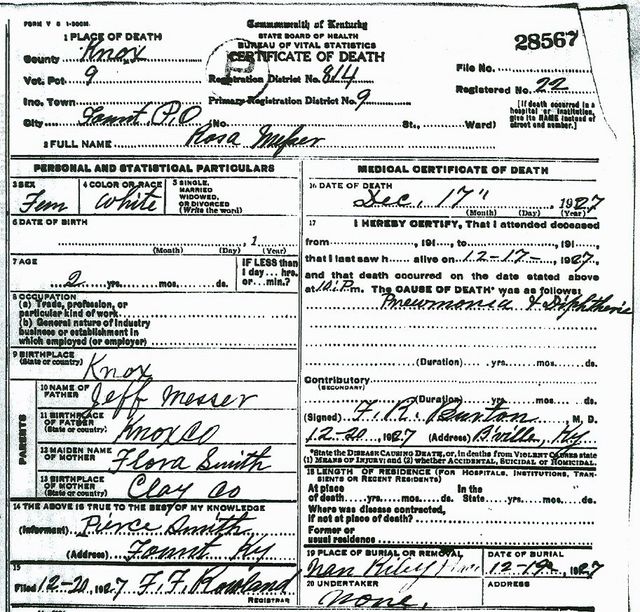 FORM V S 1-500M.
Commonwealth of Kentucky
STATE BOARD OF HEALTH
BUREAU OF VITAL STATISTICS
CERTIFICATE OF DEATH
28567
1 PLACE OF DEATH
County Knox
Vot. Pct 9
Inc. Town
City Fount, P.O (No. St., Ward)
Registration District No. 814
Primary Registration District No. 9
File No.
Registered No. 22
[If death occurred in a hospital or institution, give its NAME instead of street and number.]
2 FULL NAME Rosa Messer
PERSONAL AND STATISTICAL PARTICULARS
3 SEX Fem
4 COLOR OR RACE White
5 SINGLE, MARRIED WIDOWED, OR DIVORCED (Write the word)
6 DATE OF BIRTH
, 1
(Month) (Day) (Year)
7 AGE
2 yrs. mos. ds.
IF LESS than 1 day ... hrs. or ... min.?
8 OCCUPATION
(a) Trade, profession, or particular kind of work
(b) General nature of industry business or establishment in which employed (or employer)
9 BIRTHPLACE (State or country) Knox
PARENTS
10 NAME OF FATHER Jeff Messer
11 BIRTHPLACE OF FATHER (State or country) Knox Co
12 MAIDEN NAME OF MOTHER Flora Smith
13 BIRTHPLACE OF MOTHER (State or country) Clay Co
14 THE ABOVE IS TRUE TO THE BEST OF MY KNOWLEDGE
(Informant) Pierce Smith
(Address) Fount Ky
15
Filed 12-20, 1927 F. F. Rowland
REGISTRAR
MEDICAL CERTIFICATE OF DEATH
16 DATE OF DEATH
Dec, 17", 1927
(Month) (Day) (Year)
17 I HEREBY CERTIFY, That I attended deceased
from , 191 , to , 191 ,
that I last saw h alive on 12-17-, 1927,
and that death occurred on the date stated above
at 10:P m. The CAUSE OF DEATH* was as follows:
Pneumonia & Diphtheria
(Duration) yrs. mos. ds.
Contributory (SECONDARY)
(Duration) yrs. mos. ds.
(Signed) F. R. Burton M. D.
12-20, 1927 (Address) B'ville, Ky
*State the DISEASE CAUSING DEATH, or, in deaths from VIOLENT CAUSES state (1) MEANS OF INJURY; and (2) whether ACCIDENTAL, SUICIDAL OR HOMICIDAL.
18 LENGTH OF RESIDENCE (FOR HOSPITALS, INSTITUTIONS, TRANSIENTS OR RECENT RESIDENTS)
At place of death yrs. mos. ds. In the State yrs. mos. ds.
Where was disease contracted, if not at place of death?
Former or usual residence
19 PLACE OF BURIAL OR REMOVAL
Nan Riley
DATE OF BURIAL
12-19, 1927
20 UNDERTAKER
none,
ADDRESS